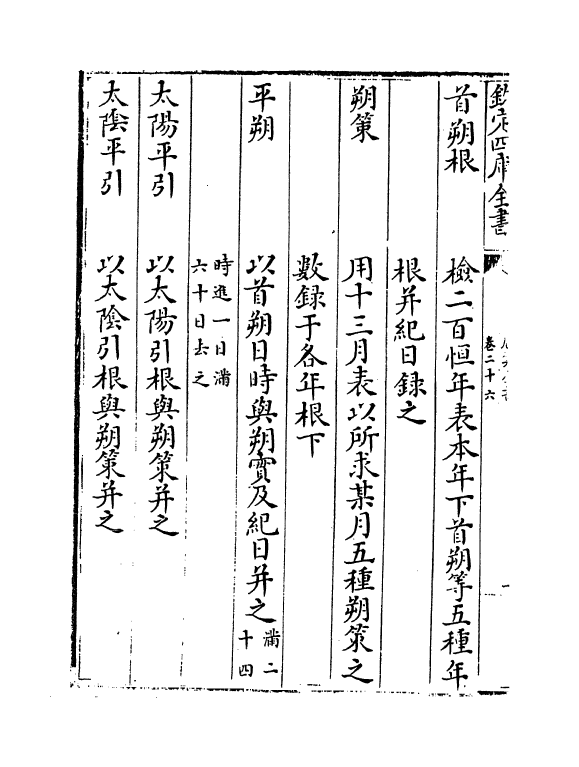 欽定四庫全書
卷二十六
首朔根　檢二百恒年表本年下首朔等五種年
根并紀日録之
朔策　用十三月表以所求某月五種朔策之
數録于各年根下
平朔　以首朔日時與朔實及紀日并之滿二十四
時進一日滿六十日去之
太陽平引　以太陽引根與朔策并之
太隂平引　以太隂引根與朔策并之